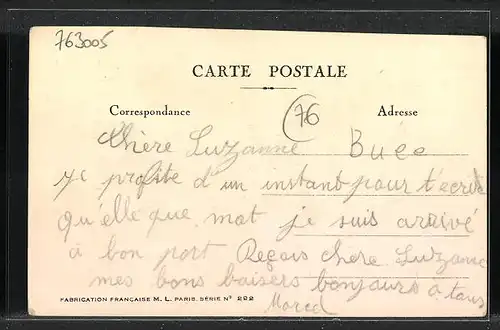 763005
CARTE POSTALE
76
Correspondance Adresse
Chère Luzanne Buee
Je profite d'un instant pour t'ecrire
quelleque mot je suis arrivé
à bon port Reçois chere Luzanne
mes bons baisers bonjours a tous
Marcel
FABRICATION FRANÇAISE M. L. PARIS. SÉRIE Nº 222